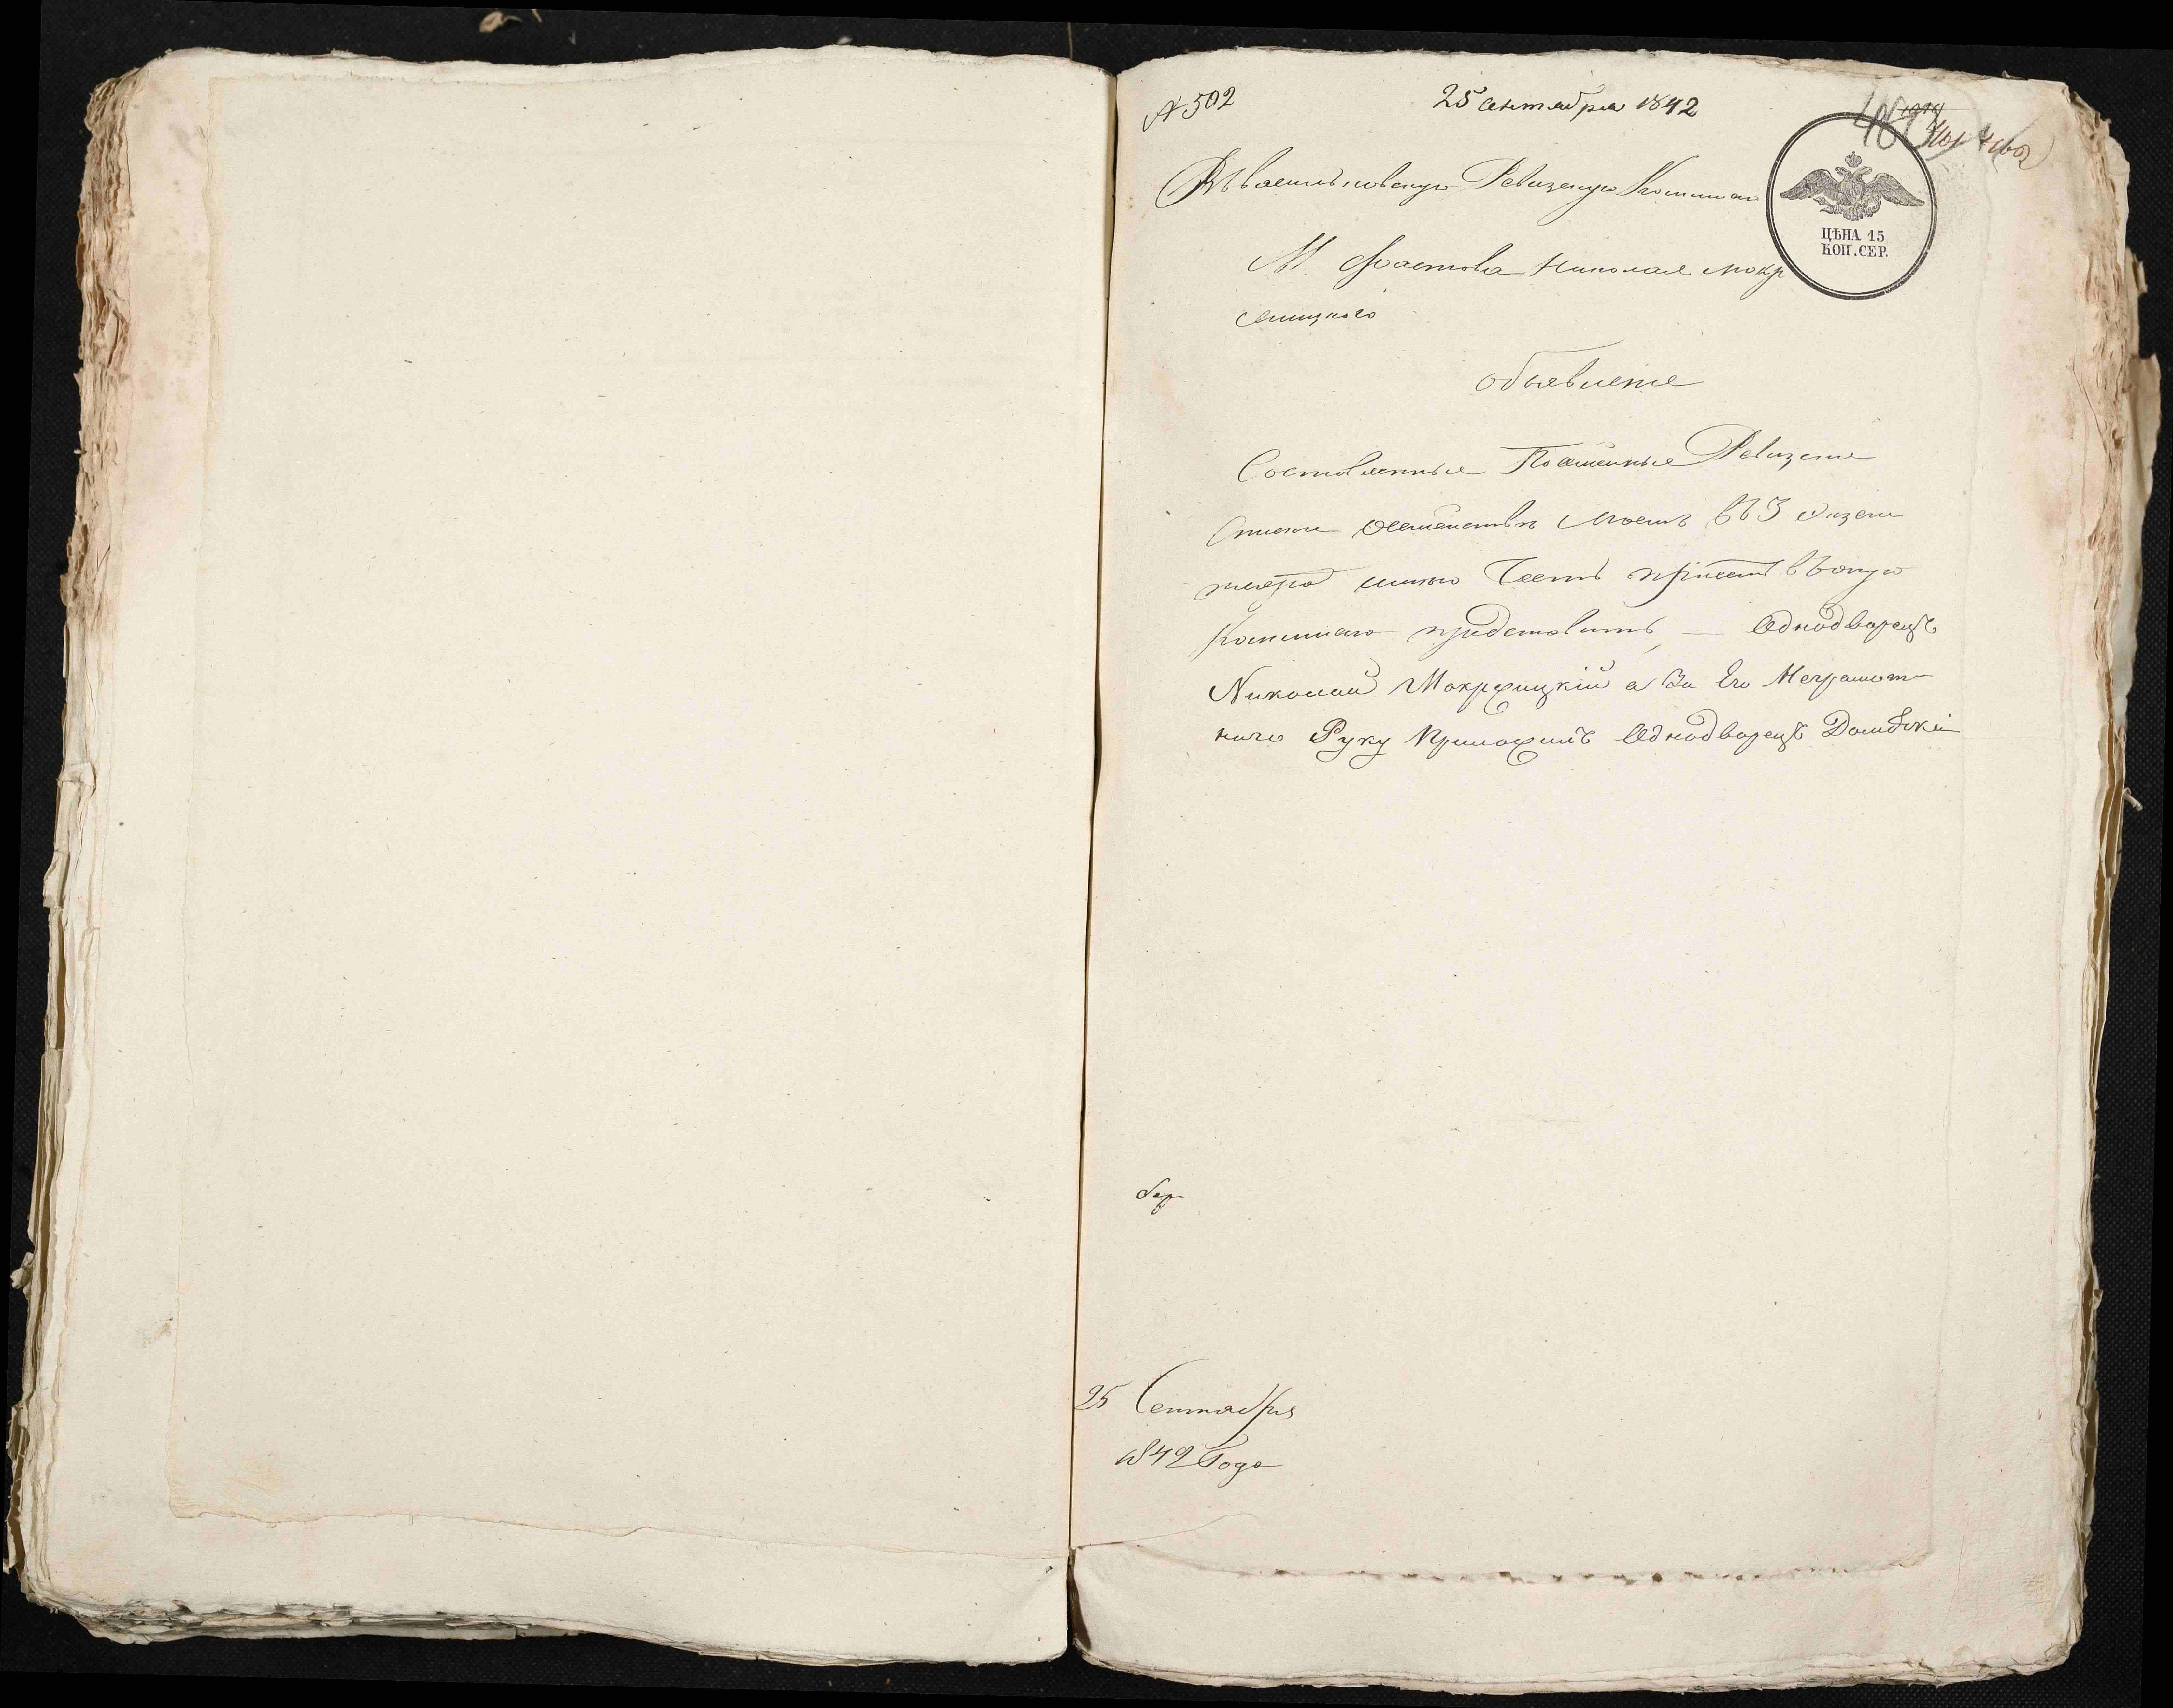 № 502
25 сентября 1842
ЦѢНА 15
КОП. СЕР.
Въ васильковскую Ревизскую Комисию
М. Фастова Николая Мокр
сицкого
объявление
Составленные Поименные Ревизские
списки о семействѣ моем въ 3 экзем
пляра имею Честь при сем въ оную
Комисию представить, — Однодворецъ
Николай Мокржицкий а За Его Неграмот
наго Руку Приложилъ Однодворецъ
25 Сентября
1842 Года